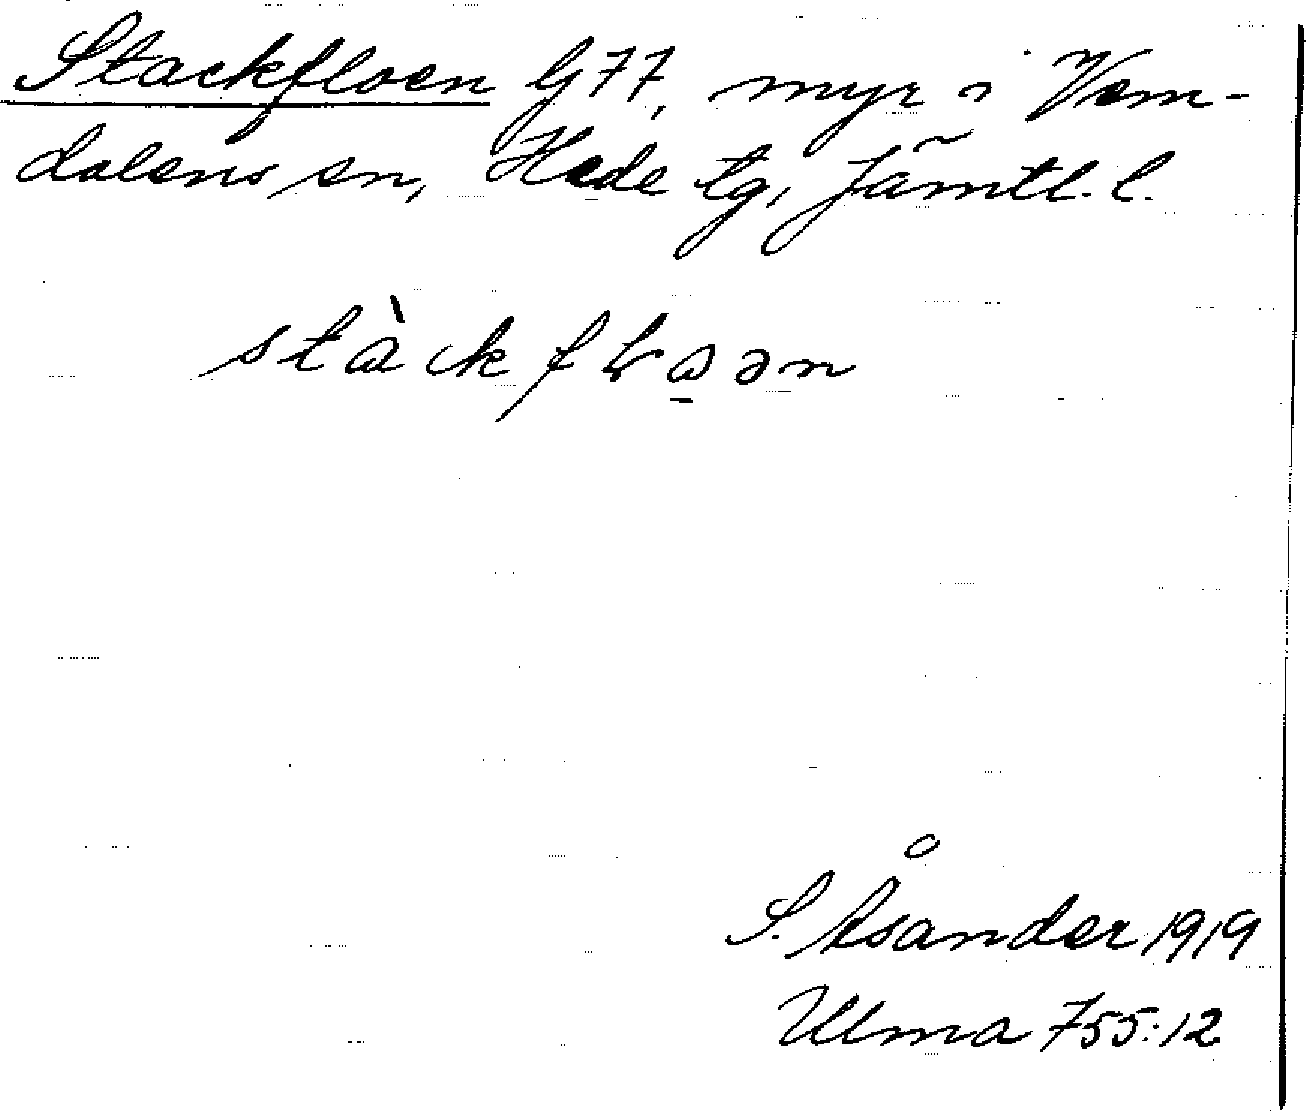 Stackfloen G 77, myr i Vem-
dalens sn, Hede tg, Jämtl. l.
S. Åsander 1919
Ulma 755:12